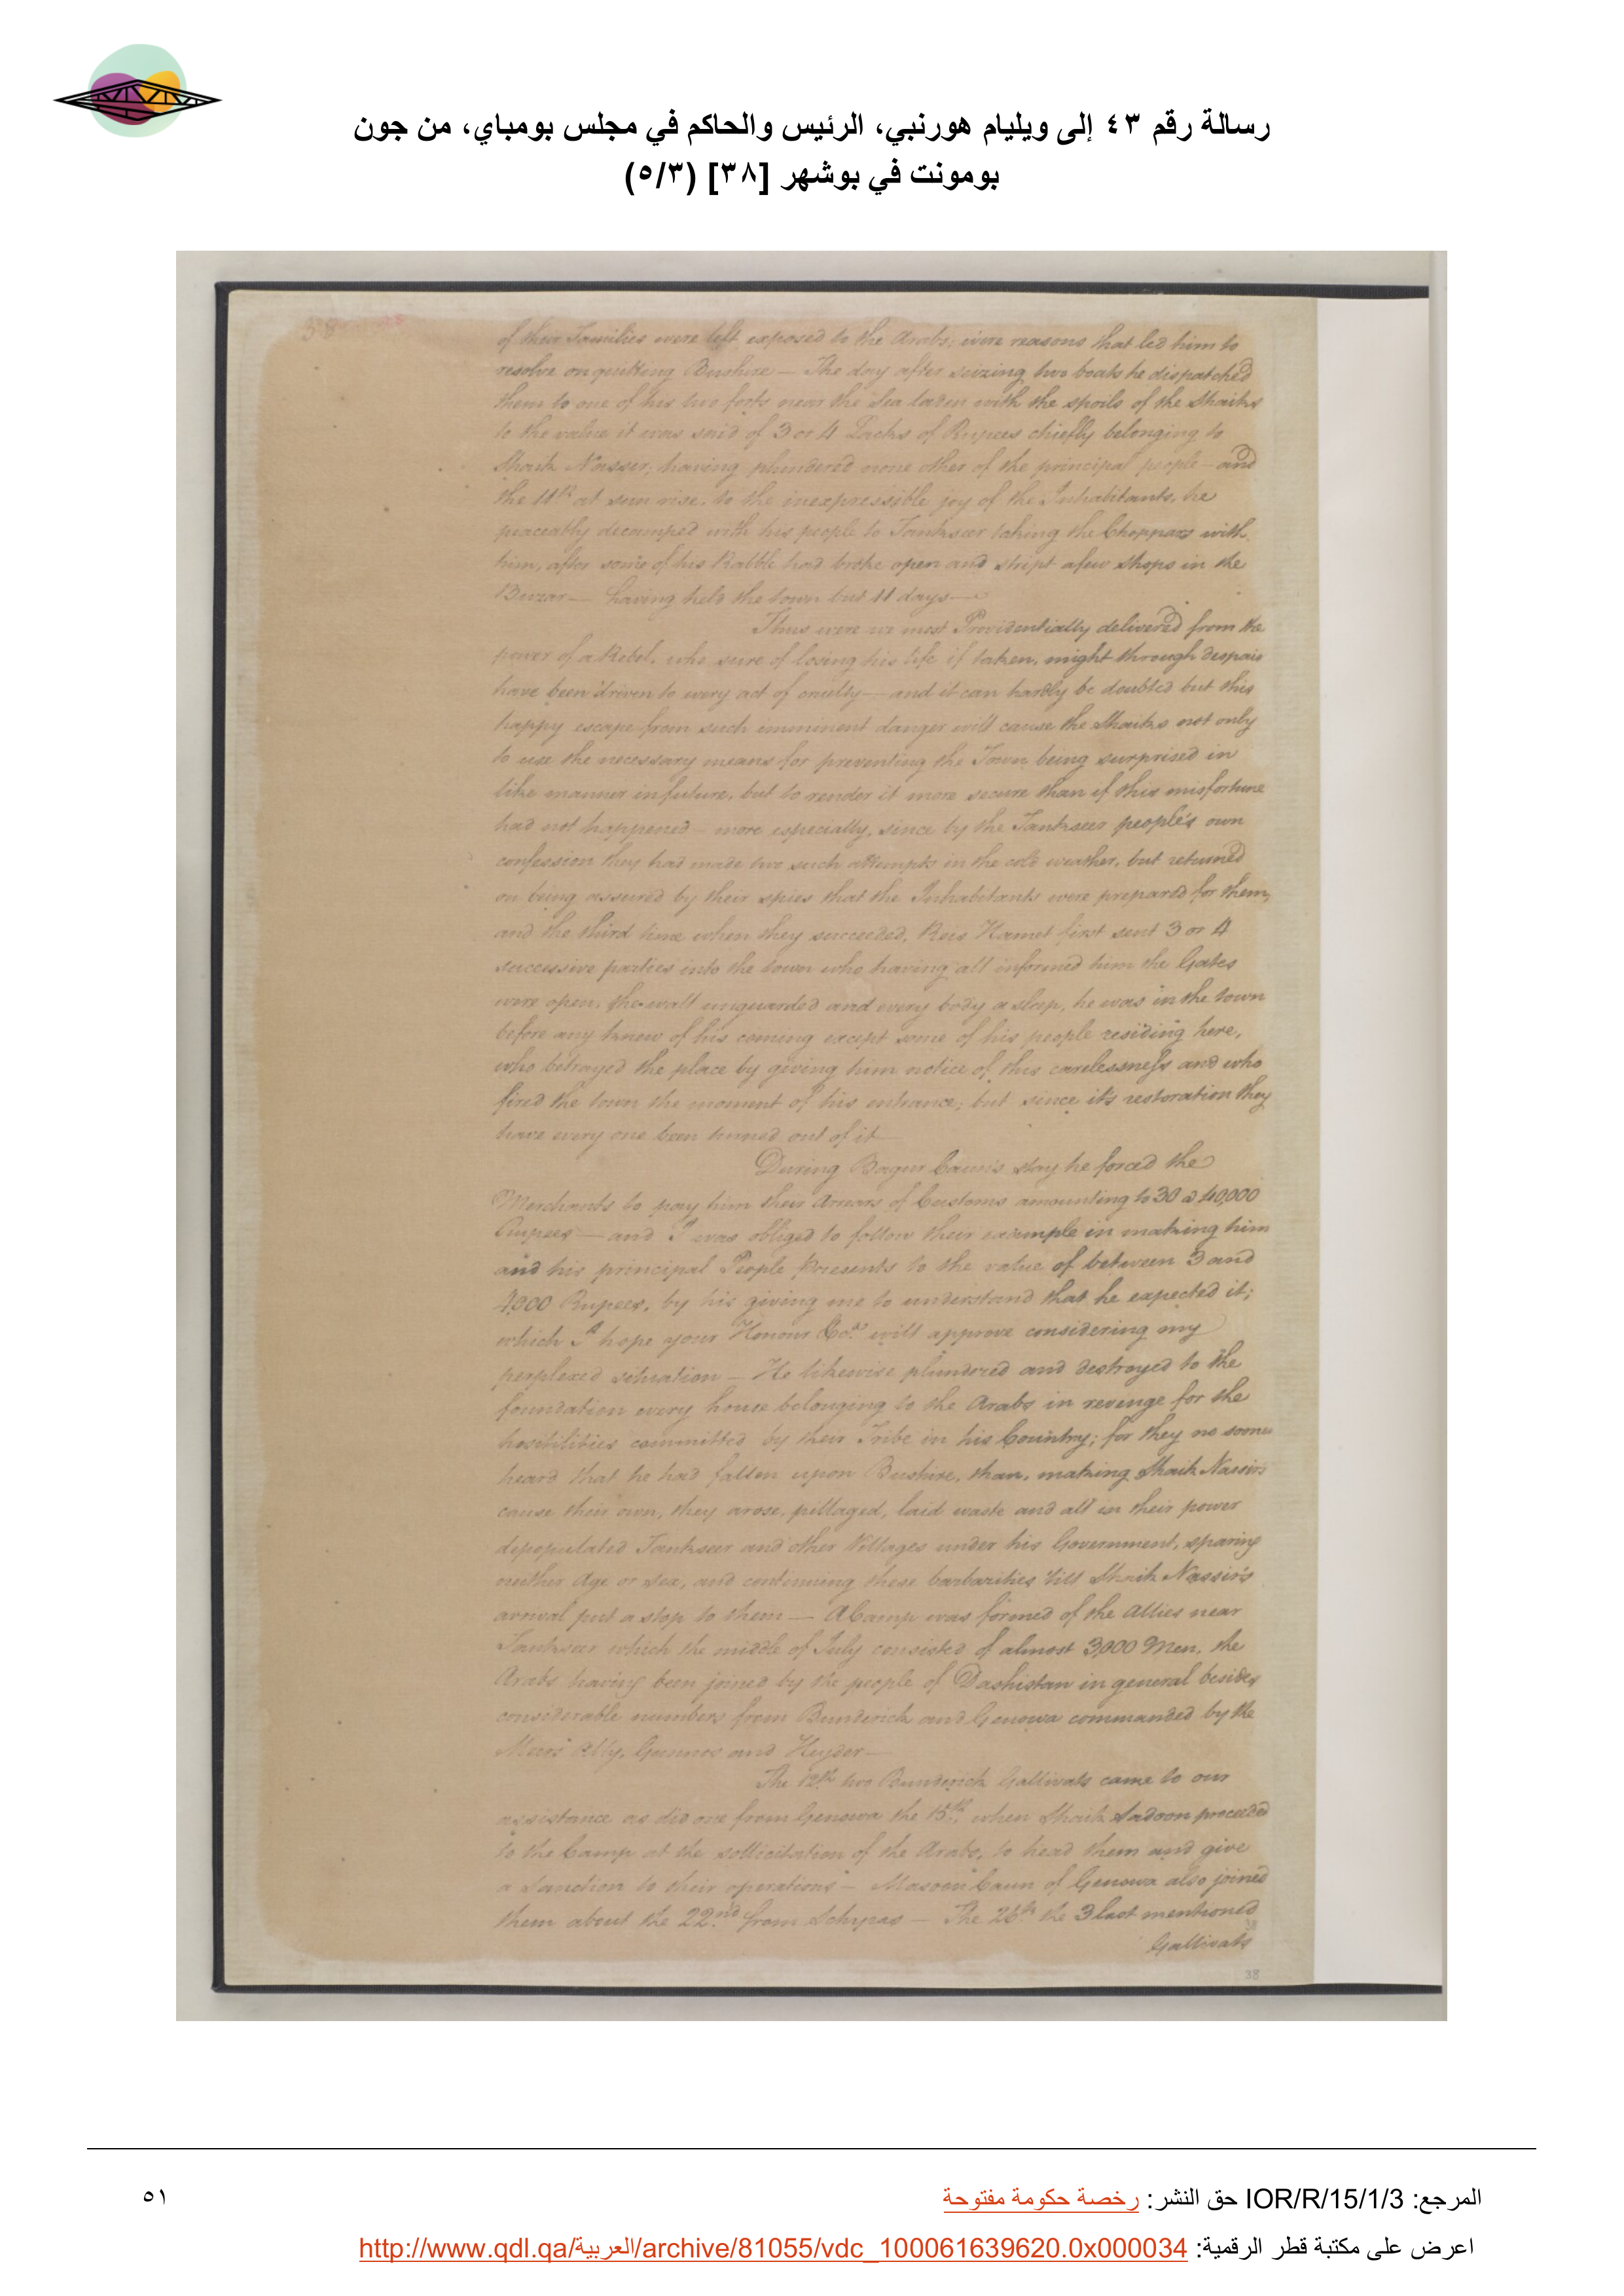 رسالة رقم ٤٣ إلى ويليام هورنبي، الرئيس والحاكم في مجلس بومباي، من جون
بومونت في بوشهر [٣٨] (٥/٣)
38
of their Families were left exposed to the Arabs; were reasons that led him to
resolve on quitting Bushire — The day after seizing two boats he dispatched
them to one of his two forts near the Sea laden with the spoils of the Shaiks
to the value it was said of 3 or 4 Lacks of Rupees chiefly belonging to
Shaik Nasser; having plundered none other of the principal people — and
the 11th at sun rise, to the inexpressible joy of the Inhabitants, he
peaceably decamped with his people to Tankseer taking the Choppars with
him, after some of his Rabble had broke open and stript a few shops in the
Buzar — having held the town but 11 days —
Thus were we most Providentially delivered from the
power of a Rebel, who sure of losing his life if taken, might through despair
have been driven to every act of cruelty — and it can hardly be doubted but this
happy escape from such imminent danger will cause the Shaiks not only
to use the necessary means for preventing the Town being surprised in
like manner in future, but to render it more secure than if this misfortune
had not happened — more especially, since by the Tankseer people's own
confession they had made two such attempts in the cold weather, but returned
on being assured by their spies that the Inhabitants were prepared for them,
and the third time when they succeeded, Reis Hamet first sent 3 or 4
successive parties into the town who having all informed him the Gates
were open, the wall unguarded and every body a sleep, he was in the town
before any knew of his coming except some of his people residing here,
who betrayed the place by giving him notice of this carelessness and who
fired the town the moment of his entrance; but since it's restoration they
have every one been turned out of it —
During Bagur Caun's stay he forced the
Merchants to pay him their Arrears of Customs amounting to 30 a 40,000
Rupees — and I was obliged to follow their example in making him
and his principal People Presents to the value of between 3 and
4,000 Rupees, by his giving me to understand that he expected it;
which I hope your Honour &ca. will approve considering my
perplexed situation — He likewise plundered and destroyed to the
foundation every house belonging to the Arabs in revenge for the
hostilities committed by their Tribe in his Country; for they no sooner
heard that he had fallen upon Bushire, than, making Shaik Nassir's
cause their own, they arose, pillaged, laid waste and all in their power
depopulated Tankseer and other Villages under his Government, sparing
neither Age or Sex, and continuing these barbarities 'till Shaik Nassir's
arrival put a stop to them — A Camp was formed of the Allies near
Tankseer which the middle of July consisted of almost 3,000 Men, the
Arabs having been joined by the people of Dashistan in general besides
considerable numbers from Bunderick and Genowa commanded by the
Meers Ally, and Hyder —
The 12th two Bunderick Gallivats came to our
assistance as did one from Genowa the 15th, when Shaik Sadoon proceeded
to the Camp at the sollicitation of the Arabs, to head them and give
a Sanction to their operations — Caun of Genowa also joined
them about the 22nd from — The 26th the 3 last mentioned
Gallivats
38
المرجع: IOR/R/15/1/3 حق النشر: رخصة حكومة مفتوحة
٥١
اعرض على مكتبة قطر الرقمية: http://www.qdl.qa/العربية/archive/81055/vdc_100061639620.0x000034